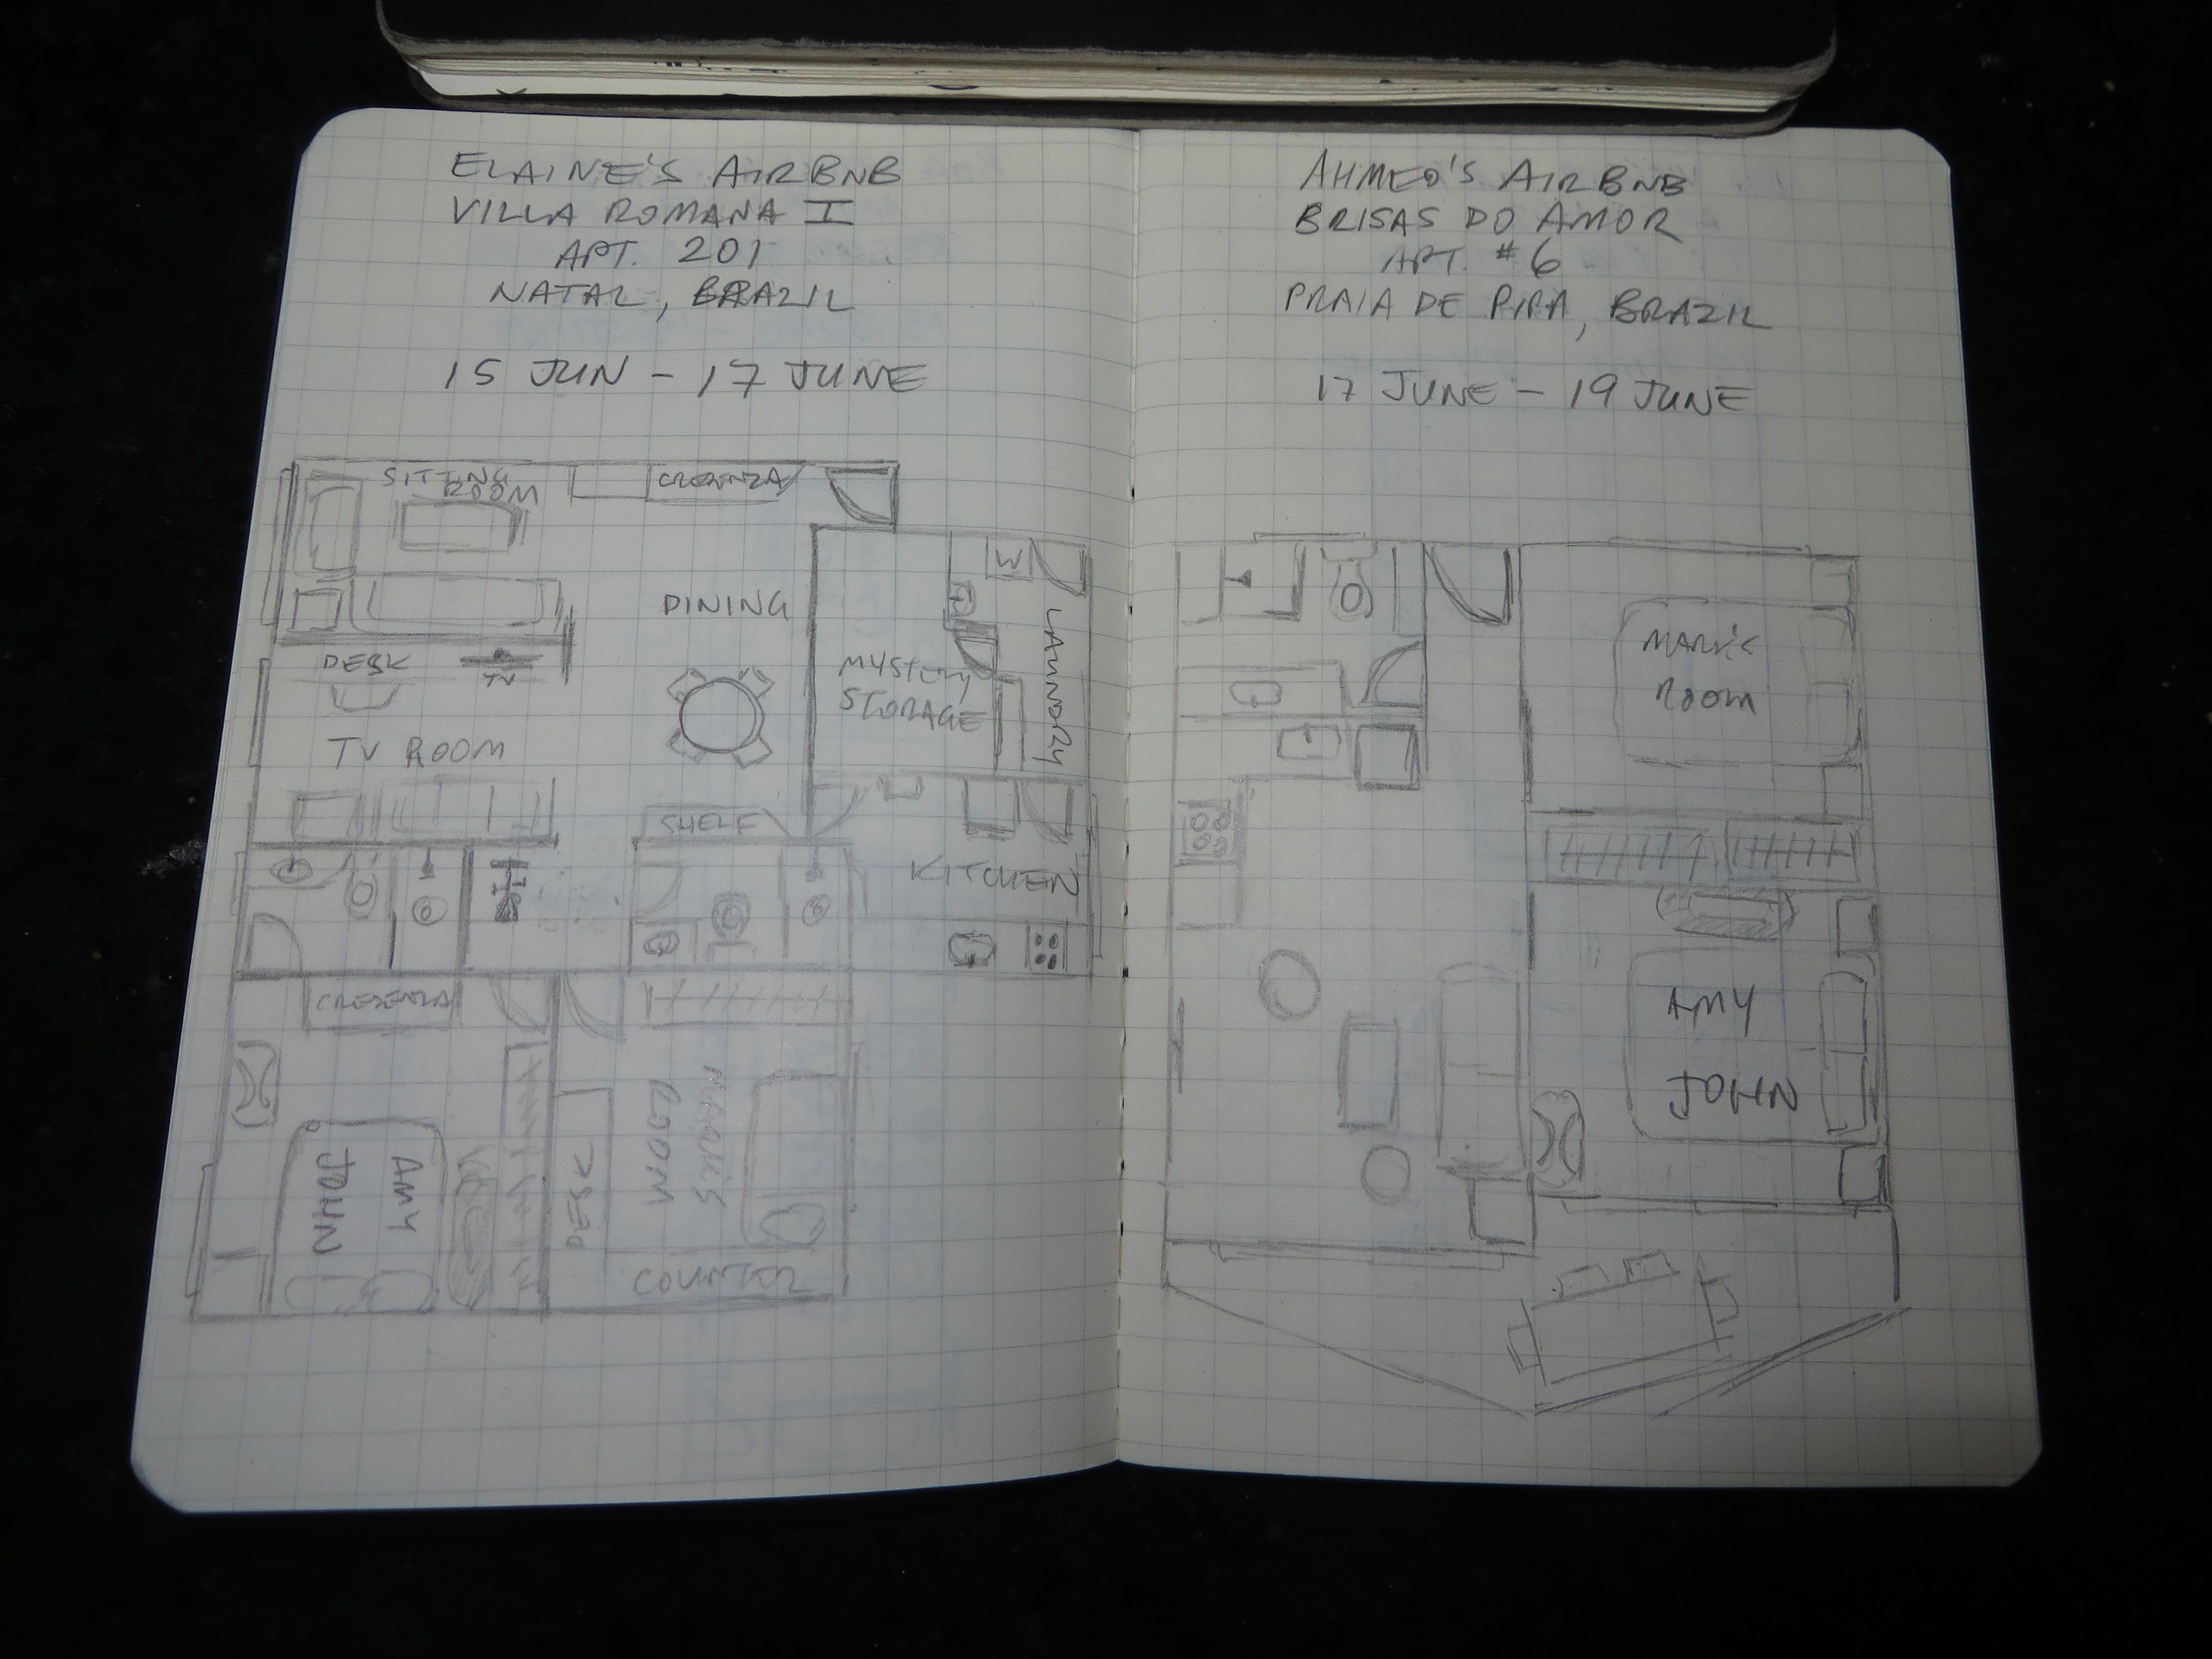 ELAINE'S AIRBNB
VILLA ROMANA I
APT. 201
NATAL, BRAZIL
15 JUN - 17 JUNE
SITTING
ROOM
CREDENZA
DINING
W
LAUNDRY
MYSTERY
STORAGE
DESK
TV
TV ROOM
SHELF
KITCHEN
CREDENZA
AMY
JOHN
DESK
MARK'S
ROOM
COUNTER
AHMED'S AIRBNB
BRISAS DO AMOR
APT. #6
PRAIA DE PIPA, BRAZIL
17 JUNE - 19 JUNE
MARK'S
ROOM
AMY
JOHN